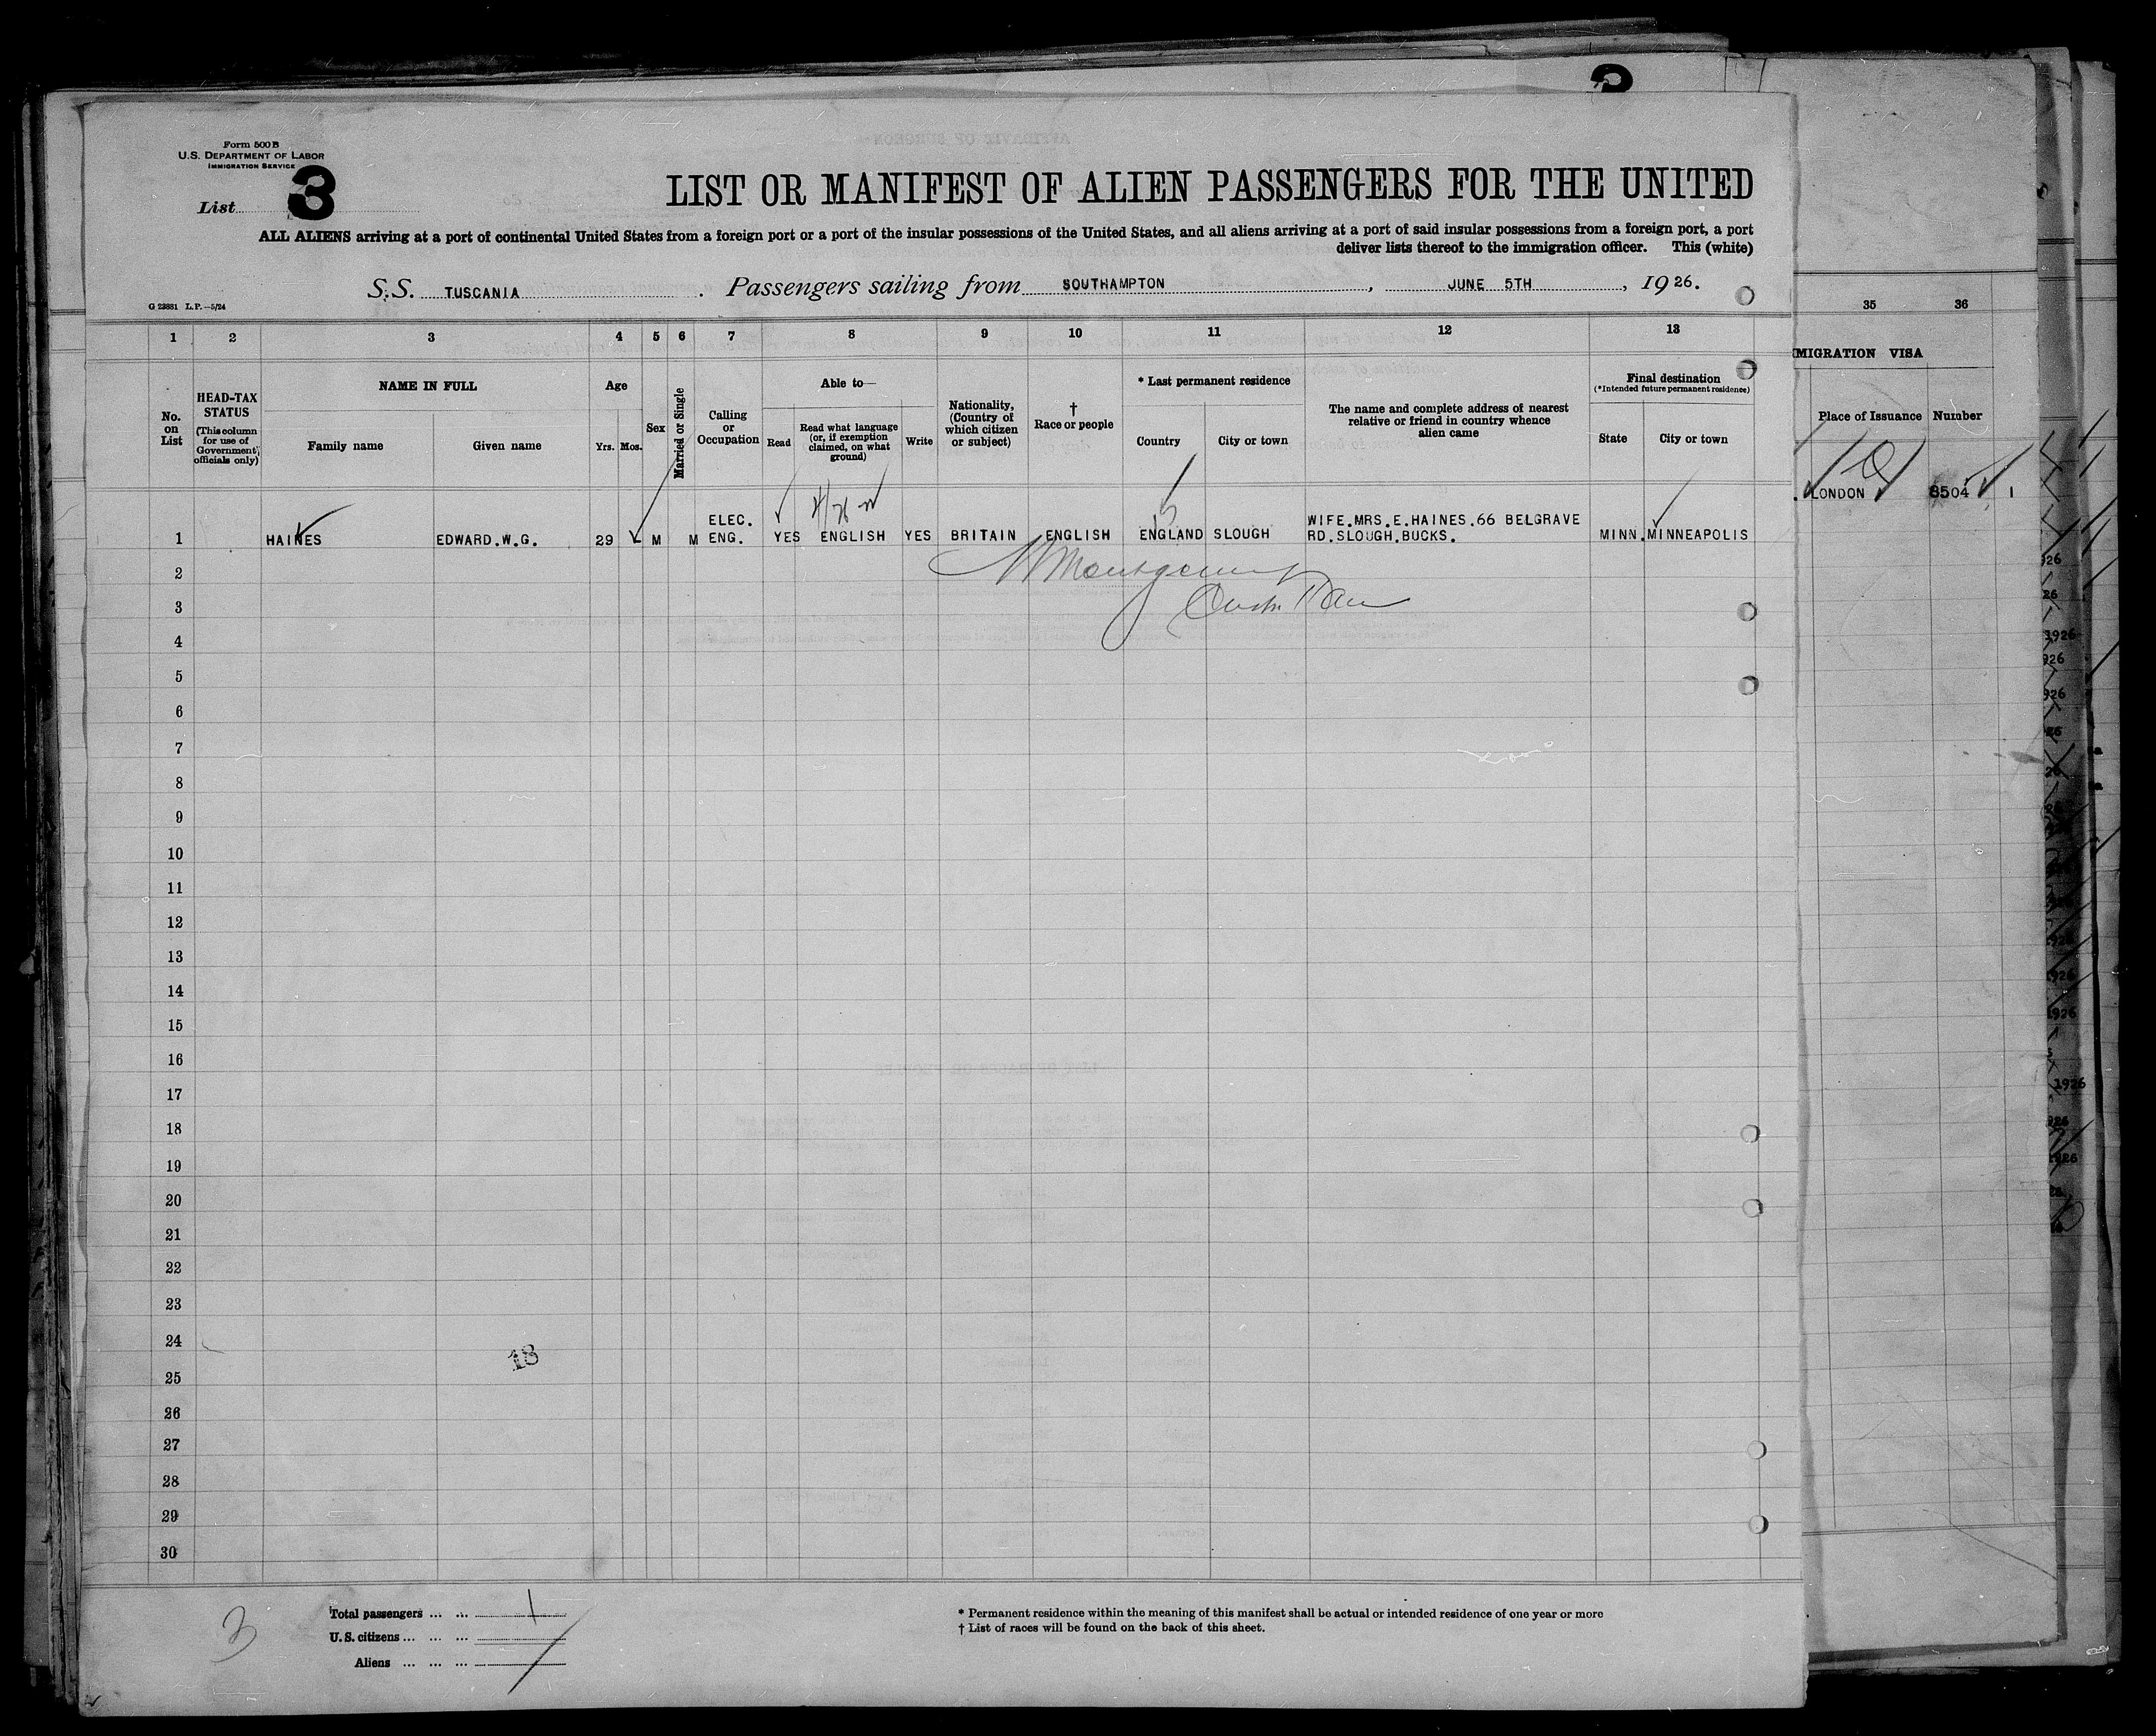 Form 500 B
U.S. DEPARTMENT OF LABOR
IMMIGRATION SERVICE
List 3
LIST OR MANIFEST OF ALIEN PASSENGERS FOR THE UNITED
ALL ALIENS arriving at a port of continental United States from a foreign port or a port of the insular possessions of the United States, and all aliens arriving at a port of said insular possessions from a foreign port, a port
deliver lists thereof to the immigration officer. This (white)
S.S. TUSCANIA . Passengers sailing from SOUTHAMPTON , JUNE 5TH , 1926.
G 23881 L.P.—5/24
1 2 3 4 5 6 7 8 9 10 11 12 13 35 36
No. on List
HEAD-TAX STATUS (This column for use of Government officials only)
NAME IN FULL
Family name
Given name
Age
Yrs. Mos.
Sex
Married or Single
Calling or Occupation
Able to—
Read
Read what language (or, if exemption claimed, on what ground)
Write
Nationality, (Country of which citizen or subject)
† Race or people
* Last permanent residence
Country
City or town
The name and complete address of nearest relative or friend in country whence alien came
Final destination
(*Intended future permanent residence)
State
City or town
MIGRATION VISA
Place of Issuance
Number
1 HAINES EDWARD.W.G. 29 M M ELEC. ENG. YES ENGLISH YES BRITAIN ENGLISH ENGLAND SLOUGH WIFE.MRS.E.HAINES.66 BELGRAVE RD.SLOUGH.BUCKS. MINN. MINNEAPOLIS LONDON 8504 1
2
3
4
5
6
7
8
9
10
11
12
13
14
15
16
17
18
19
20
21
22
23
24
18
25
26
27
28
29
30
3
Total passengers ... ... 1
U.S. citizens ... ... ...
Aliens ... ... ... 1
* Permanent residence within the meaning of this manifest shall be actual or intended residence of one year or more
† List of races will be found on the back of this sheet.